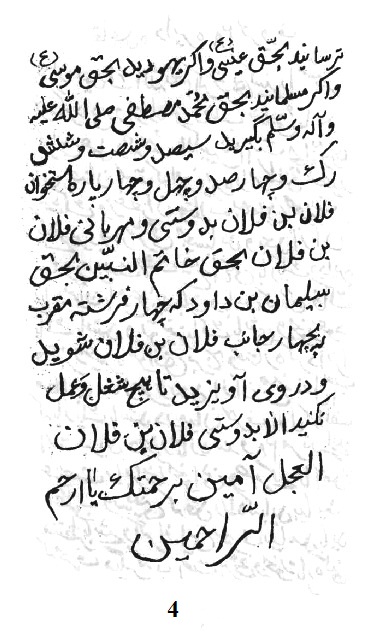 ترسانید بحق عیسی (ع) واکر یهودید بحق موسی (ع)
واکر مسلمانید بحق محمد مصطفی صلی الله علیه
وآله وسلم بگیرید سیصد وشصت وشش
رک وچهارصد وچهل وچهار پاره استخوان
فلان بن فلان بدوستی ومهربانی فلان
بن فلان بحق خاتم النبیّین بحق
سیلمان بن داود که چهار فرشته مقرب
بچهار جانب فلان بن فلان شوید
ودر وی آویزید تا هیچ شغل وعمل
نکنید الا بدوستی فلان بن فلان
العجل آمین برحمتک یا ارحم
الرّاحمین
4